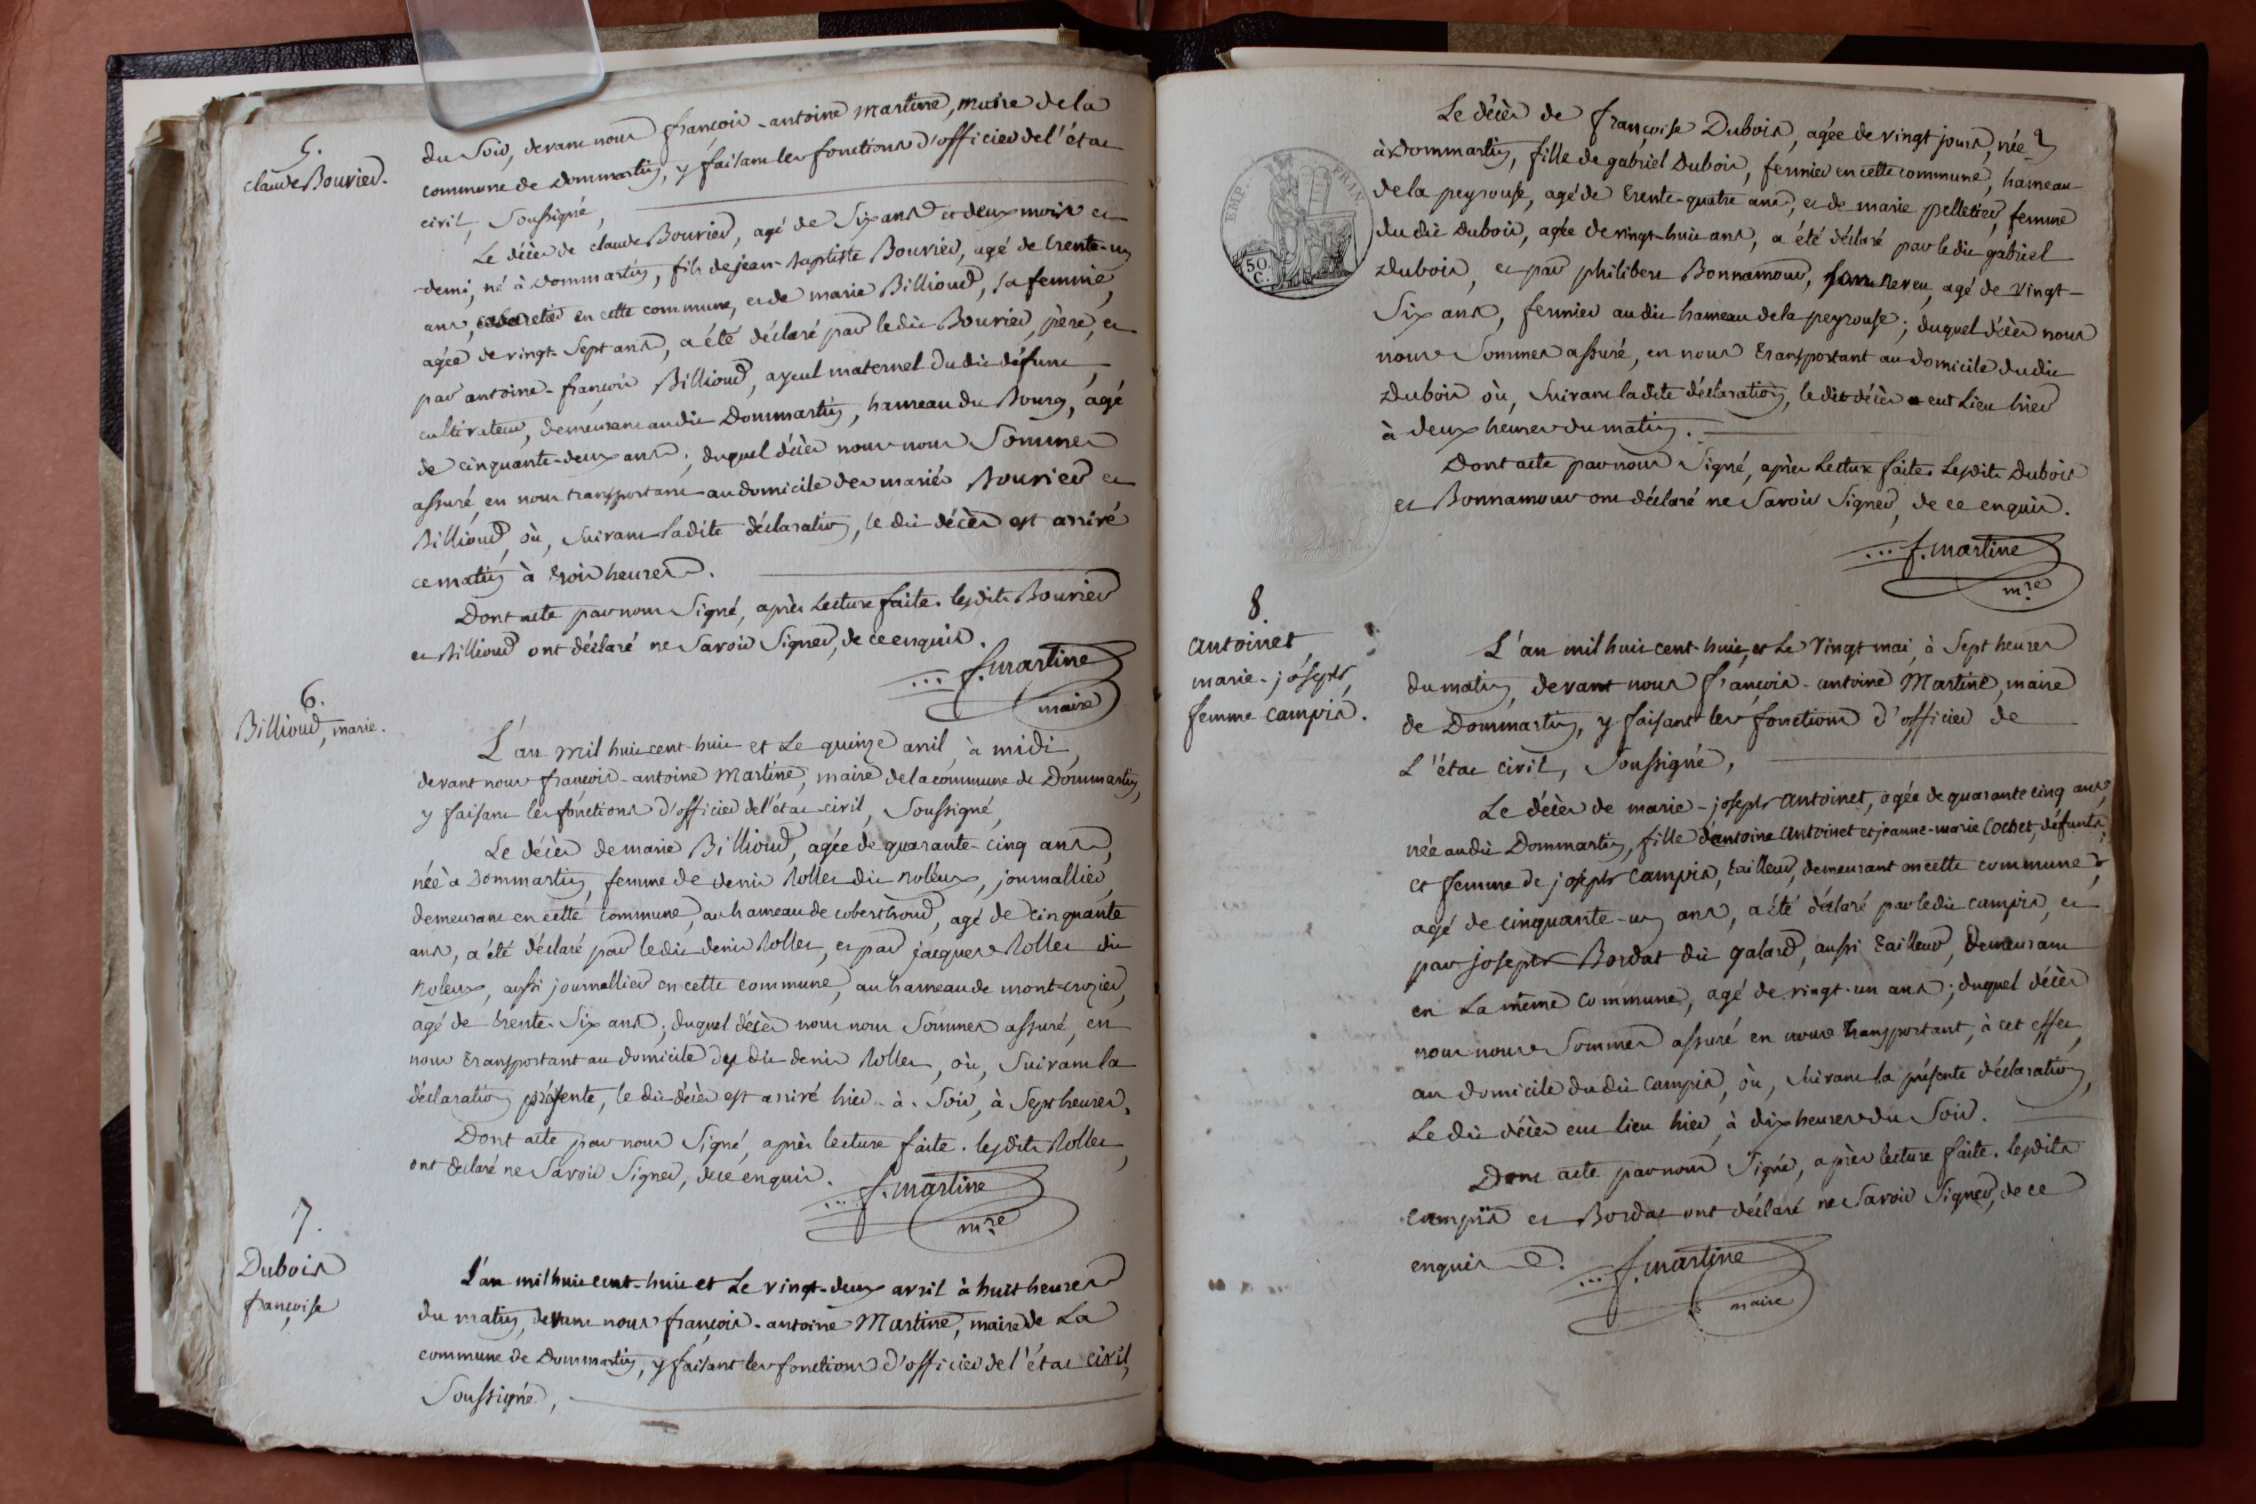 5.
Claude Bouvier.
du Soir, devant nous françois-antoine Martine, maire de la
commune de Dommartin, y faisant les fonctions d'officier de l'état
civil, Soussigné,
Le décès de claude Bouvier, agé de Six ans et deux mois et
demi, né à Dommartin, fils de jean-baptiste Bouvier, agé de trente-un
ans, cabaretier en cette commune, et de marie Billioud, sa femme,
agée de vingt-Sept ans, a été déclaré par ledit Bouvier, père, et
par antoine-françois Billioud, ayeul maternel dudit défunt,
cultivateur, demeurant audit Dommartin, hameau du Bourg, agé
de cinquante-deux ans; duquel décès nous nous Sommes
assuré, en nous transportant au domicile des mariés Bouvier et
Billioud, où, suivant ladite déclaration, le dit décès est arrivé
ce matin à trois heures.
Dont acte par nous Signé, après Lecture faite. lesdits Bouvier
et Billioud ont déclaré ne Savoir Signer, de ce enquis.
f. martine
maire
6.
Billioud, marie.
L'an mil huit cent-huit et Le quinze avril, à midi,
devant nous françois-antoine Martine, maire de la commune de Dommartin,
y faisant les fonctions d'officier de l'état civil, Soussigné,
Le décès de marie Billioud, agée de quarante-cinq ans,
née à Dommartin, femme de denis Rollet dit Roleux, journallier,
demeurant en cette commune, au hameau de , agé de cinquante
ans, a été déclaré par ledit denis Rollet, et par jacques Rollet dit
Roleux, aussi journallier en cette commune, au hameau de mont-crozier,
agé de trente-Six ans; duquel décès nous nous Sommes assuré, en
nous transportant au domicile du dit denis Rollet, où, Suivant la
déclaration présente, le dit décès est arrivé hier-à-Soir, à Sept heures.
Dont acte par nous Signé, après lecture faite. lesdits Rollet,
ont déclaré ne Savoir Signer, de ce enquis.
f. martine
mre
7.
Dubois
françoise
L'an mil huit cent-huit et Le vingt-deux avril à huit heures
du matin, devant nous françois-antoine Martine, maire de La
commune de Dommartin, y faisant les fonctions d'officier de l'état civil,
Soussigné,
EMP. FRAN.
50
C.
Le décès de françoise Dubois, agée de vingt jours, née
à Dommartin, fille de gabriel Dubois, fermier en cette commune, hameau
de la peyrouse, agé de trente-quatre ans, et de marie pelletier, femme
du dit Dubois, agée de vingt-huit ans, a été déclaré par le dit gabriel
Dubois, et par philibert Bonnamour, neveu, agé de vingt-
Six ans, fermier au dit hameau de la peyrouse; duquel décès nous
nous Sommes assuré, en nous transportant au domicile dudit
Dubois où, Suivant ladite déclaration, ledit décès eut Lieu hier
à deux heures du matin.
Dont acte par nous Signé, après Lecture faite. Lesdits Dubois
et Bonnamour ont déclaré ne Savoir Signer, de ce enquis.
f. martine
mre
8.
Antoinet,
marie-joseph,
femme campis.
L'an mil huit cent-huit, et Le Vingt mai, à Sept heures
du matin, devant nous françois-antoine Martine, maire
de Dommartin, y faisant les fonctions d'officier de
L'état civil, Soussigné,
Le décès de marie-joseph Antoinet, agée de quarante cinq ans,
née audit Dommartin, fille d'antoine Antoinet et jeanne-marie Cochet, défunts,
et femme de joseph Campis, tailleur, demeurant en cette commune,
agé de cinquante-un ans, a été déclaré par ledit campis, et
par joseph Bordat dit galard, aussi tailleur, demeurant
en La même commune, agé de vingt-un ans; duquel décès
nous nous Sommes assuré en nous transportant, à cet effet,
au domicile dudit campis, où, suivant la présente déclaration,
Le dit décès eut lieu hier, à dix heures du Soir.
Dont acte par nous Signé, après lecture faite. lesdits
campis et Bordat ont déclaré ne Savoir Signer, de ce
enquis.
f. martine
maire